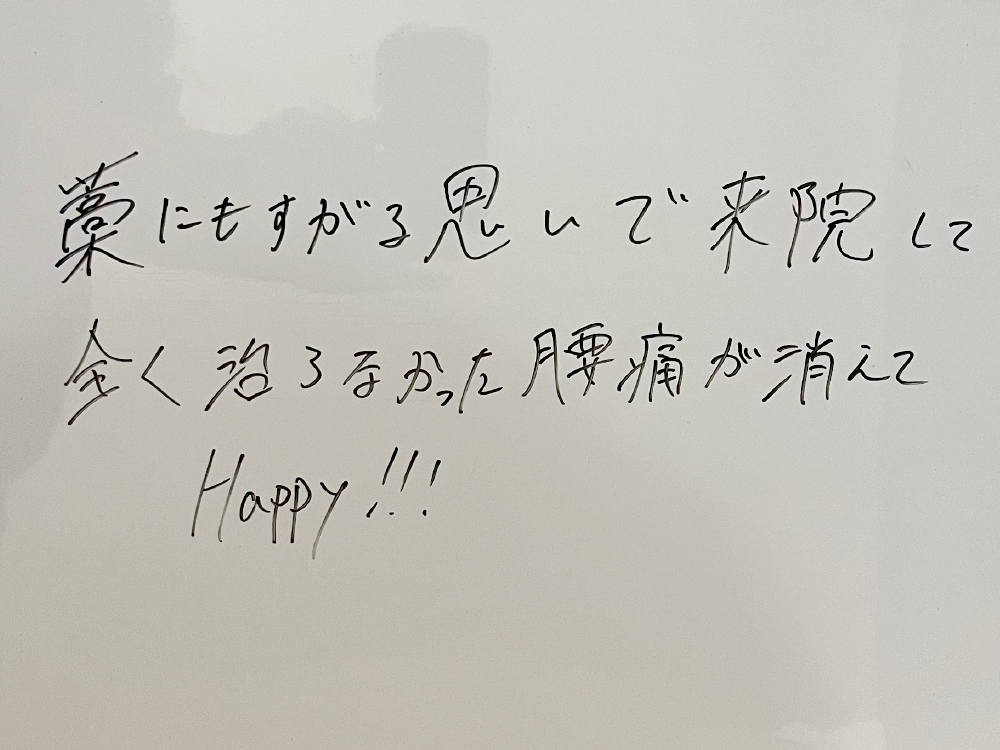 藁にもすがる思いで来院して
全く治らなかった腰痛が消えて
Happy!!!